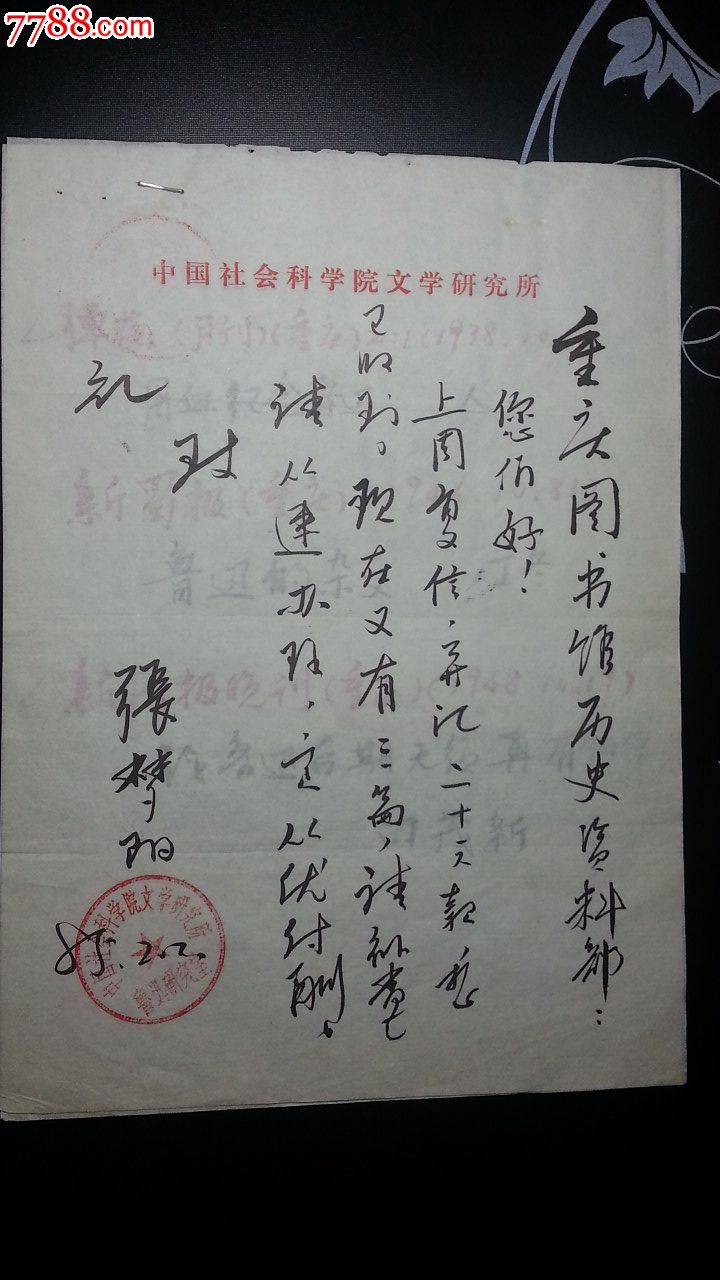 7788.com
中国社会科学院文学研究所
重庆图书馆历史资料部：
您们好！
上周复信，并汇二十元款，想
已收到。现在又有三篇，请补查，
请从速办理，定从优付酬。
致
礼
張梦阳
85.2.
中国社会科学院文学研究所
鲁迅研究室
新蜀报(重庆)
鲁迅的杂文